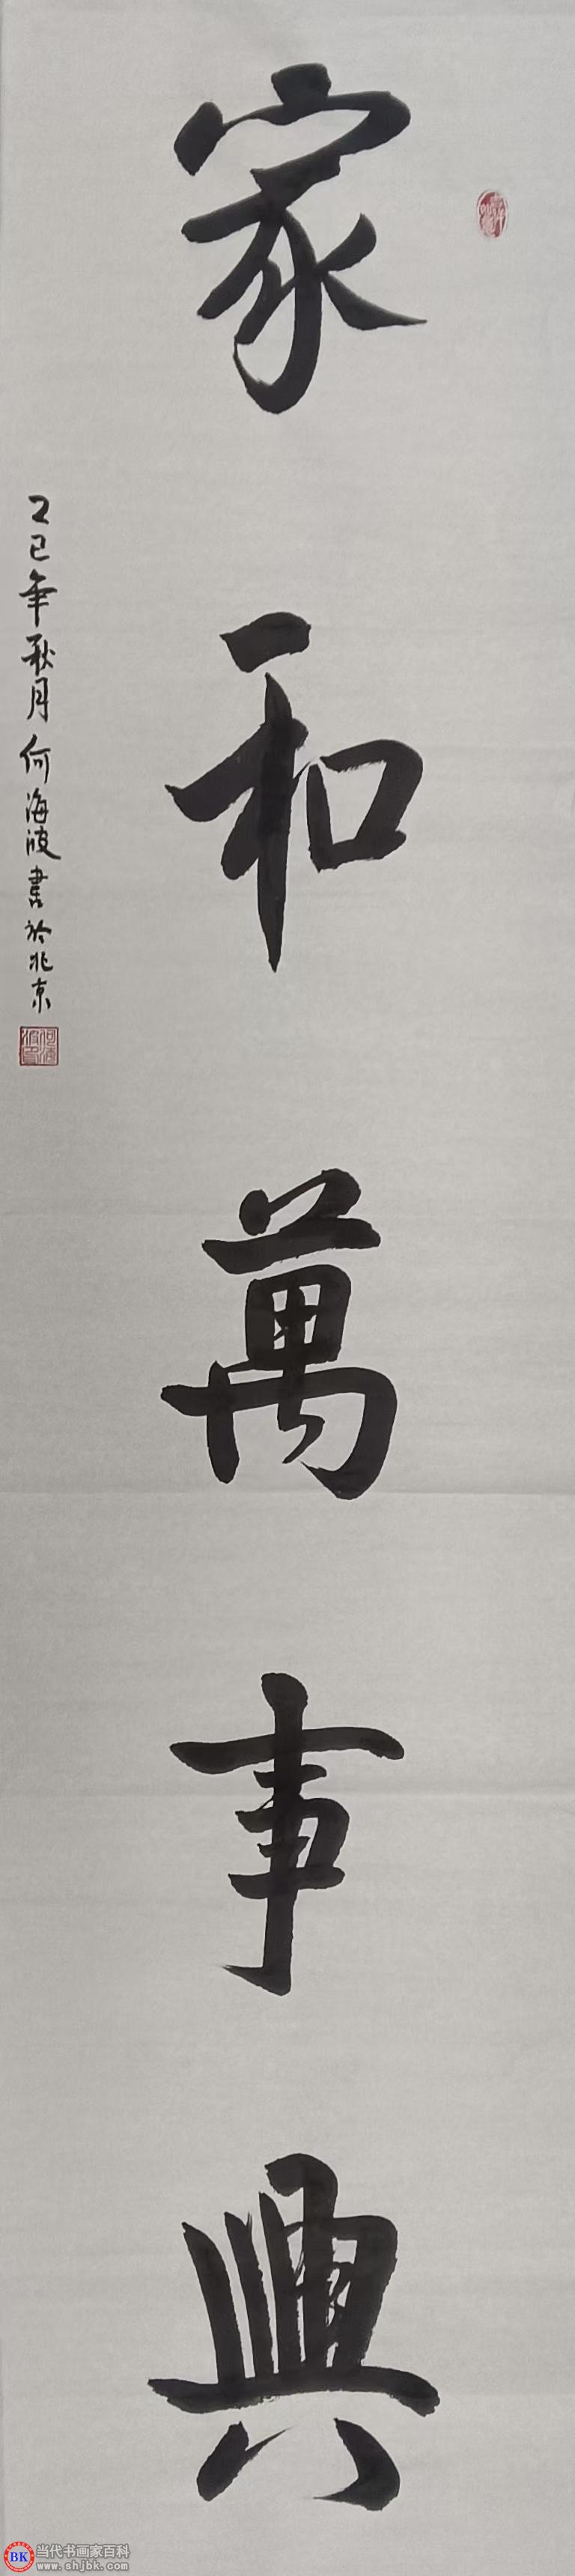 家和萬事興
乙巳年秋月何海波書於北京
BK 当代书画家百科
www.shjbk.com